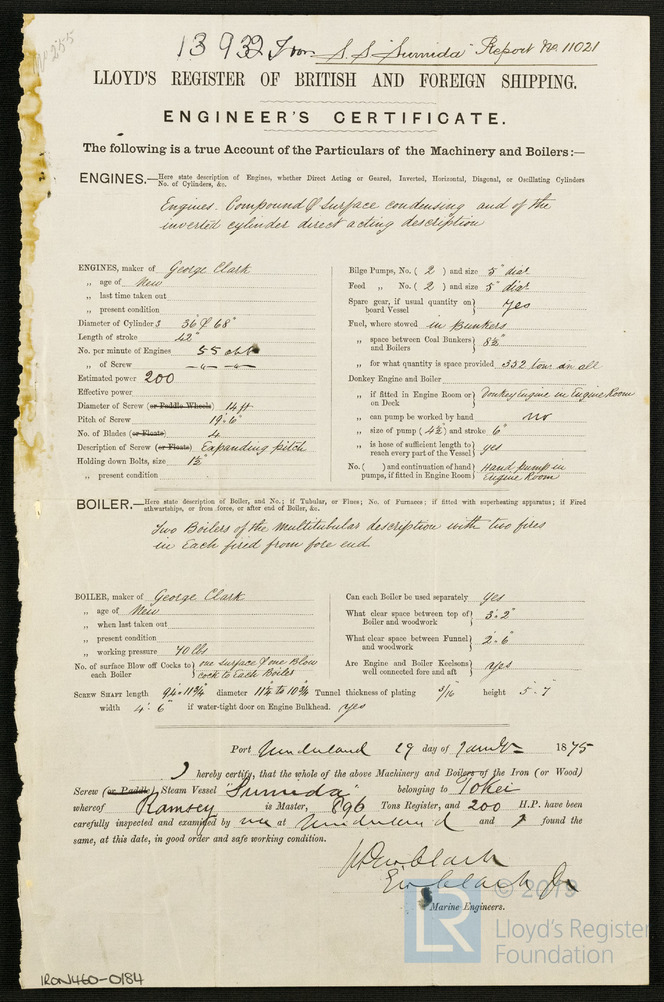 No 255
13932 Iron S.S "Sumida" Report No. 11021
LLOYD'S REGISTER OF BRITISH AND FOREIGN SHIPPING.
ENGINEER'S CERTIFICATE.
The following is a true Account of the Particulars of the Machinery and Boilers:—
ENGINES.—Here state description of Engines, whether Direct Acting or Geared, Inverted, Horizontal, Diagonal, or Oscillating Cylinders
No. of Cylinders, &c.
Engines. Compound & Surface condensing and of the
inverted cylinder direct acting description
ENGINES, maker of George Clark
„ age of New
„ last time taken out
„ present condition
Diameter of Cylinders 36" & 68"
Length of stroke 42"
No. per minute of Engines 55
„ of Screw — „ — „ —
Estimated power 200
Effective power
Diameter of Screw (or Paddle Wheels) 14 ft
Pitch of Screw 19.6"
No. of Blades (or Floats) 4
Description of Screw (or Floats) Expanding pitch
Holding down Bolts, size 1½"
„ present condition
Bilge Pumps, No. ( 2 ) and size 5" diar
Feed „ No. ( 2 ) and size 5" diar
Spare gear, if usual quantity on
board Vessel } yes
Fuel, where stowed in Bunkers
„ space between Coal Bunkers
and Boilers } 8½"
„ for what quantity is space provided 332 tons in all
Donkey Engine and Boiler
„ if fitted in Engine Room or
on Deck } Donkey Engine in Engine Room
„ can pump be worked by hand no
„ size of pump ( 4½ ) and stroke 6"
„ is hose of sufficient length to
reach every part of the Vessel } yes
No. ( ) and continuation of hand
pumps, if fitted in Engine Room } Hand pump in
Engine Room
BOILER.—Here state description of Boiler, and No.; if Tubular, or Flues; No. of Furnaces; if fitted with superheating apparatus; if Fired
athwartships, or from fore, or after end of Boiler, &c.
Two Boilers of the multitubular description with two fires
in Each fired from fore end
BOILER, maker of George Clark
„ age of New
„ when last taken out
„ present condition
„ working pressure 70 lbs
No. of surface Blow off Cocks to
each Boiler } one surface & one Blow
cock to Each Boiler
Can each Boiler be used separately yes
What clear space between top of
Boiler and woodwork } 3'.2"
What clear space between Funnel
and woodwork } 2'.6"
Are Engine and Boiler Keelsons
well connected fore and aft } yes
SCREW SHAFT length 94.11¾" diameter 11½ to 10¾ Tunnel thickness of plating 3/16 height 5'.7
width 4' 6" if water-tight door on Engine Bulkhead. yes
Port Sunderland 29 day of 1875
I hereby certify, that the whole of the above Machinery and Boilers of the Iron (or Wood)
Screw (or Paddle) Steam Vessel "Sumida" belonging to Tokei
whereof Ramsey is Master, 896 Tons Register, and 200 H.P. have been
carefully inspected and examined by me at Sunderland and I found the
same, at this date, in good order and safe working condition.
Marine Engineers.
© 2019
LR
Lloyd's Register
Foundation
IRON460-0184